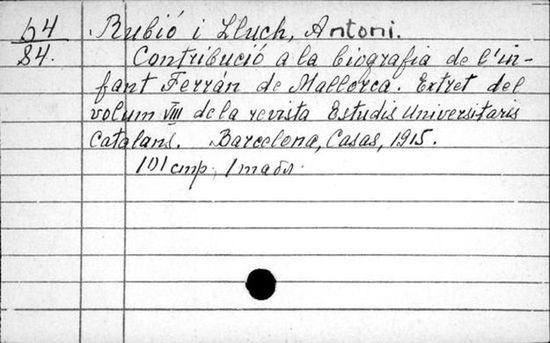 64
84.
Rubió i Lluch, Antoni.
Contribució a la biografia de l'in-
fant Ferrán de Mallorca. Extret del
volum VIII de la revista Estudis Universitaris
Catalans. Barcelona, Casas, 1915.
101 стр. 1 табл.